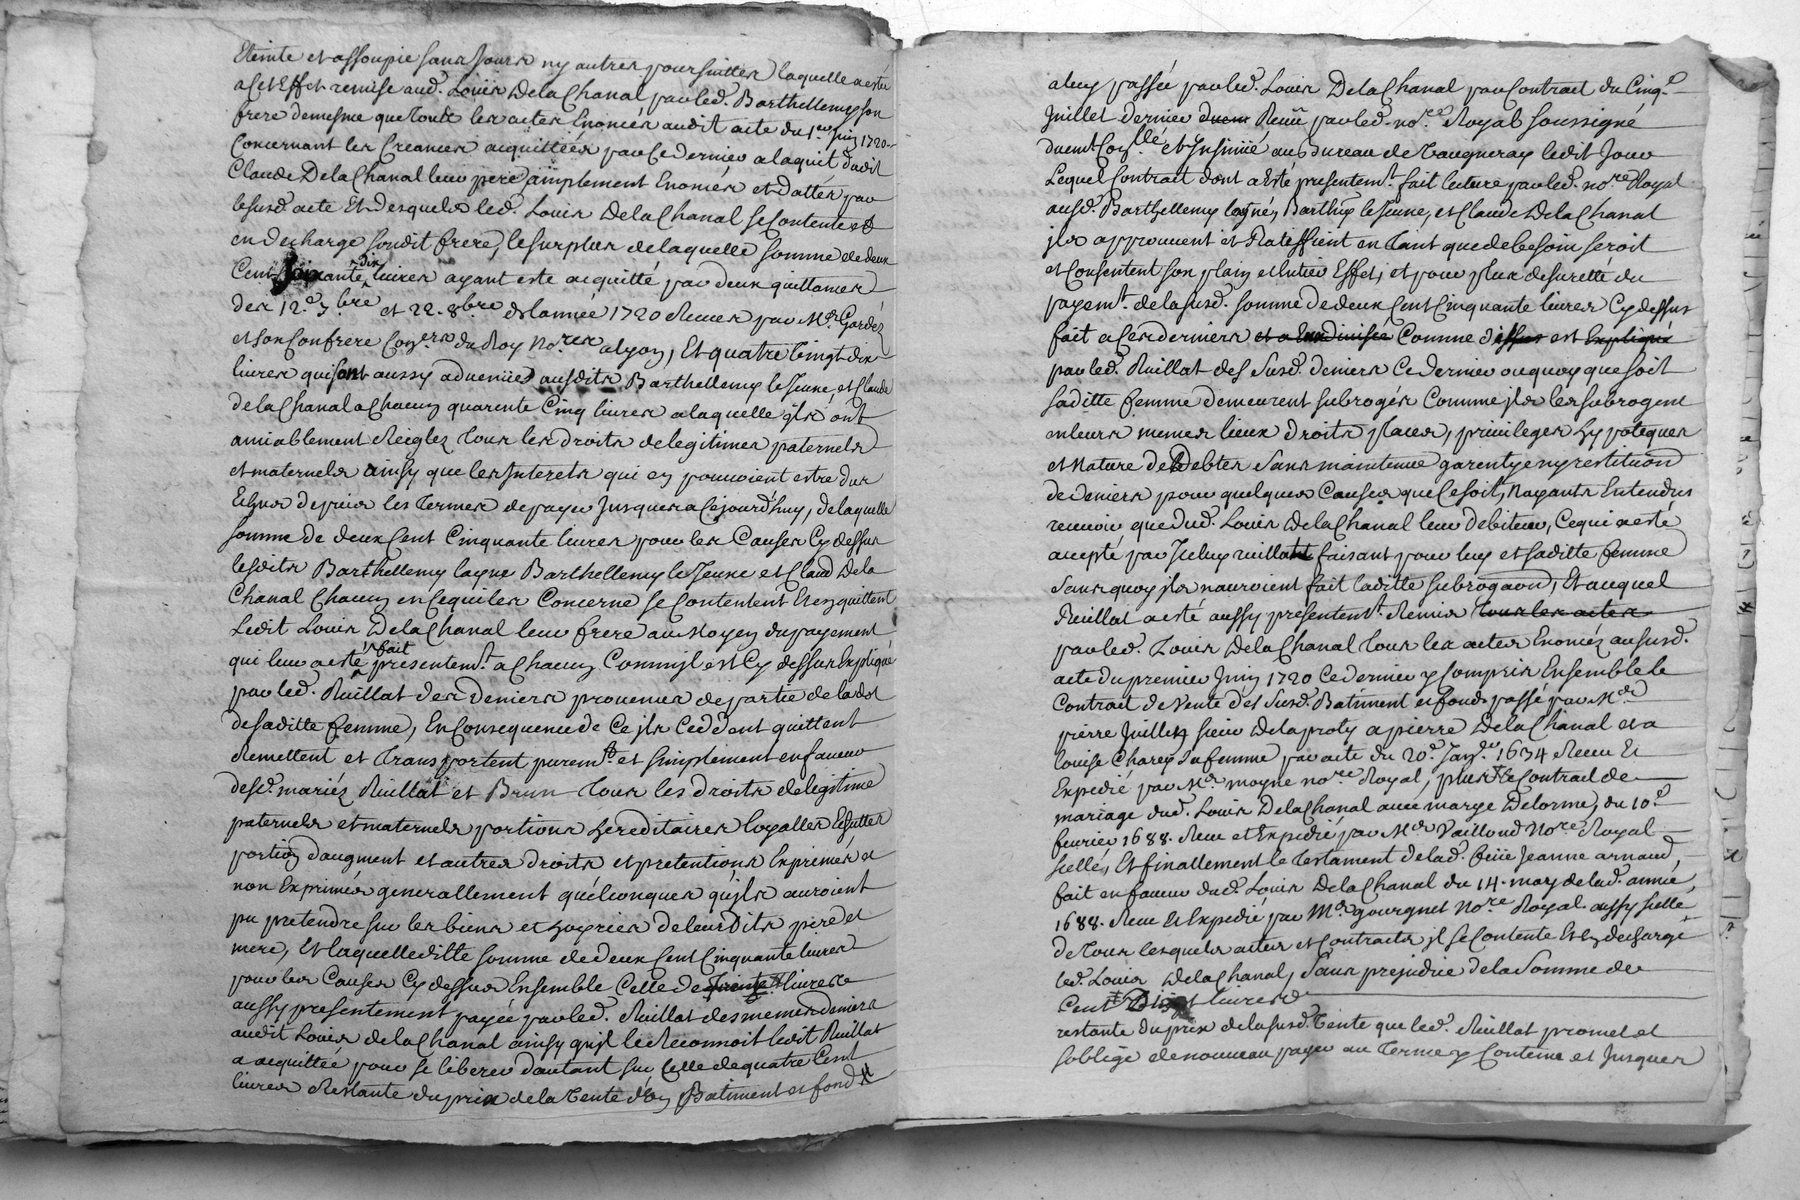 Eteinte et assoupie sans Jours ny autres poursuittes laquelle a esté
a Cet Effet remise aud. Loüis Delachanal par led. Barthellemy son
frere demesme que Touts les actes Enoncés audit acte du 1.er Juin 1720
Concernant les Creances acquittées par Ce dernier a laquit dudit
Claude Delachanal leur pere amplement Enoncés et dattés par
lesusd. acte Et desquels led. Louis Delachanal se Contente et
en decharge sondit frere, le surplus de laquelle somme de deux
Cent soixante dix livres ayant esté acquitté par deux quittances
des 12.e 7.bre et 22. 8bre de lannée 1720 Receues par Me. Gardes
et son Confrere Con.ers du Roy No.res a lyon, Et quatre Vingt dix
livres qui sont aussy advenües ausdits Barthellemy le Jeune et Claude
delachanal a Chacun quarente Cinq livres a laquelle ils ont
amiablement Reiglez Tous les droits de legitimes paternels
et maternels ainsy que les Interets qui en pouvoient estre dus
Echus depuis les Termes de payer Jusques a Cejourd'huy, de laquelle
somme de deux Cent Cinquante livres pour les Causes Cy dessus
lesdits Barthellemy layne Barthellemy le Jeune et Claud Dela
Chanal Chacun en Ce qui les Concerne se Contentent Et en quittent
Ledit Louis Delachanal leur frere au Moyen du payement
qui leur a esté fait presentem.t a Chacun Comm'il est Cy dessus Expliqué
par led. Ruillat des Deniers provenus de partie de la dot
de saditte femme, En Consequence de Ce ils Ceddent quittent
Remettent et Transportent purem.t et simplement en faveur
desd. mariéz Ruillat et Brun Tous les droits de legitime
paternels et maternels portions hereditaires loyalles Echuttes
portion daugment et autres droits et pretentions Exprimés et
non Exprimés generallement quelconques qu'ils auroient
pu pretendre sur les biens et hoyries de leursdits pere et
mere, Et laquelleditte somme de deux Cent Cinquante livres
pour les Causes Cy dessus Ensemble Celle de Trente livres
aussy presentement payée par led. Ruillat des memes deniers
audit Louis delachanal ainsy qu'il le Reconnoit ledit Ruillat
a acquittée pour se liberer dautant sur Celle de quatre Cent
livres Restante du prix de la Vente d'un Batiment et fond
a luy passée par led. Louis Delachanal par Contract du Cinq.e
Juillet dernier duem Reçu par led. no.re Royal soussigné
duemt Con.llé et Insinüé au bureau de Vaugneray ledit Jour
Lequel Contract dont a Esté presentem.t fait lecture par led. no.re Royal
ausd. Barthellemy layné, Barth.y le Jeune, et Claude Delachanal
ils approuvent et Ratiffient en Tant que de besoin seroit
et Consentent son plain et entier Effet, et pour plus de sureté du
payem.t de la susd. somme de deux Cent Cinquante livres Cy dessus
fait a Ces derniers Comme dessus est Expliqué
par led. Ruillat des susd. deniers Ce dernier ou quoy que soit
saditte femme demeurent subrogés Comme ils les subrogent
en leurs memes lieux droits places, privileges hypoteques
et Nature de debtes sans maintenue garentye ny restitution
de deniers pour quelques Causes que Ce soit, Nayants Entendus
recevoir que dud. Louis Delachanal leur debiteur, Ce qui a esté
accepté par Iceluy ruillat faisant pour luy et saditte femme
sans quoy ils nauroient fait laditte subrogaon, Et auquel
Ruillat a esté aussy presentem.t Remis Tous les actes
par led. Louis Delachanal Tous les actes Enoncez au susd.
acte du premier Juin 1720 Ce dernier y Compris Ensemble le
Contract de Vente des susd. Batiment et fonds passé par M.e
pierre Juillet sieur delaproty a pierre Delachanal et a
louise Charey sa femme par acte du 20.e Janv.er 1634 Receu et
Expedié par M.e moyne no.re Royal, plus le Contract de
mariage dud. Louis Delachanal avec marye Delorme, du 10.e
fevrier 1688. Receu et Expedié par M.e Vaillond No.re Royal
scellé, Et finallement le Testament de lad. feüe Jeanne arnaud,
fait en faveur dud. Louis Delachanal du 14. may de lad. année
1688. Receu et Expedié par M.e gourgnet No.re Royal aussy scellé
de Tous lesquels actes et Contracts il se Contente Et en decharge
led. Louis Delachanal, Sans prejudice de la Somme de
Cent Vingt livres
restante du prix de la susd. Vente que led. Ruillat promet et
s'oblige de nouveau payer au Terme y Contenu et Jusques